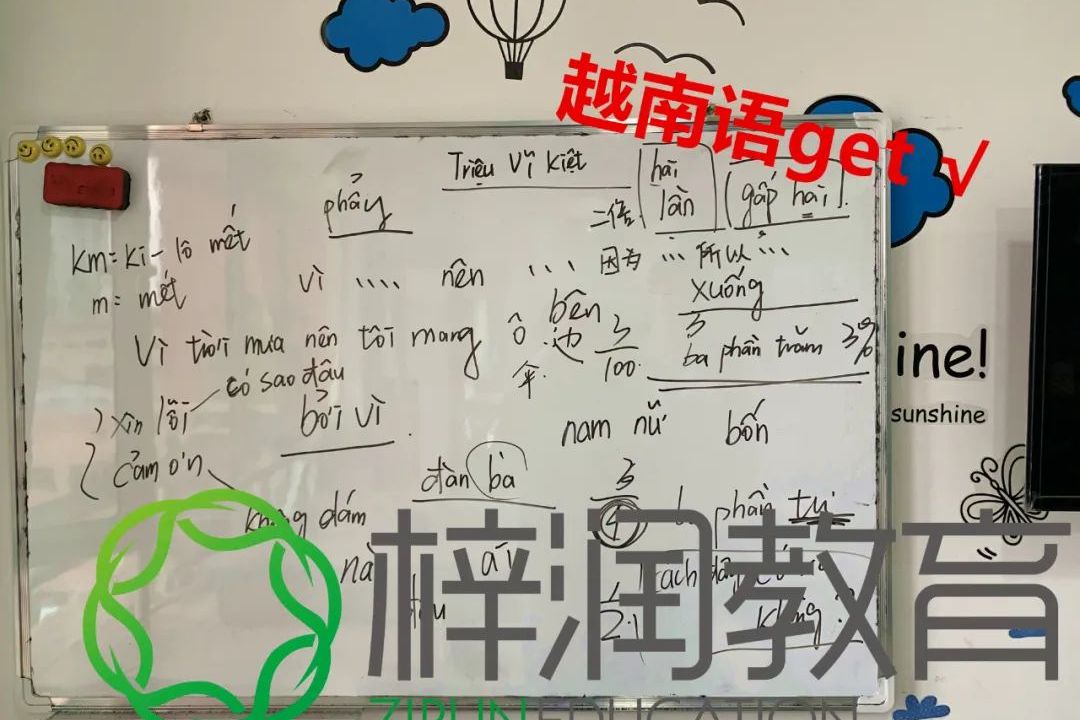 越南语get √
Triệu Vĩ Kiệt
hai
lần
gấp hai
二倍
phẩy
km = ki-lô mét
m = mét
vì .... nên ...
因为 ... 所以 ...
xuống
bên
边
Vì trời mưa nên tôi mang ô
伞
3/100
3 ba phần trăm 3%
có sao đâu
xin lỗi
bởi vì
cảm ơn
nam nữ
bốn
đàn bà
không dám
3/4
phần tư
không?
ine!
sunshine
梓润教育
ZIRUN EDUCATION